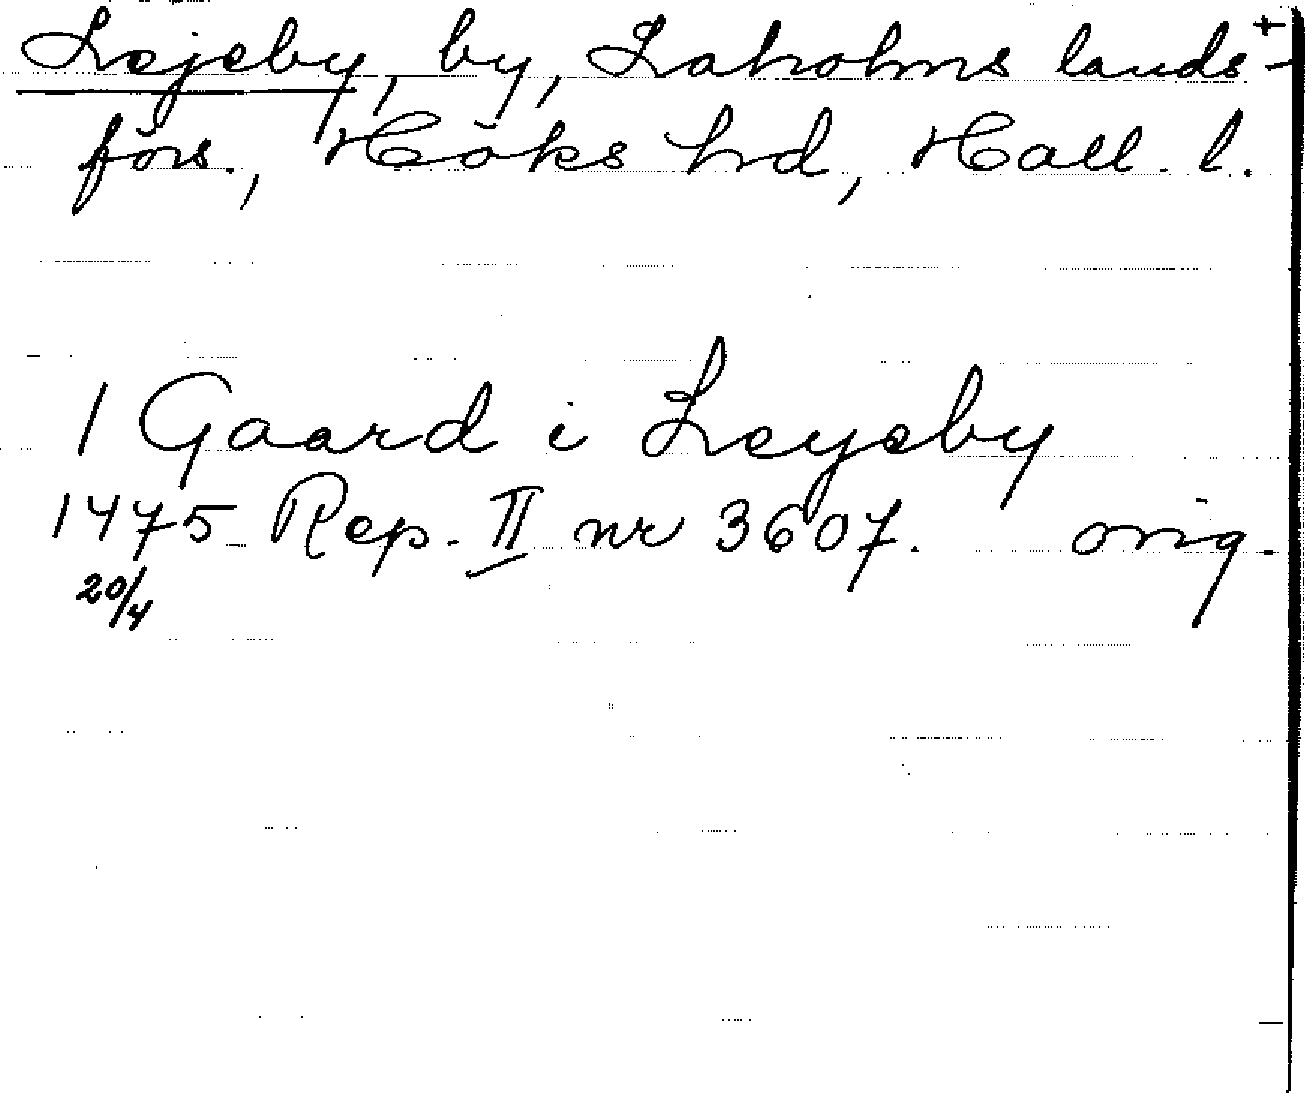 Lejeby, by, Laholms lands- +
förs., Höks hd, Hall. l.
1 Gaard i Leyeby
1475 Rep. II nr 3607. orig.
20/4